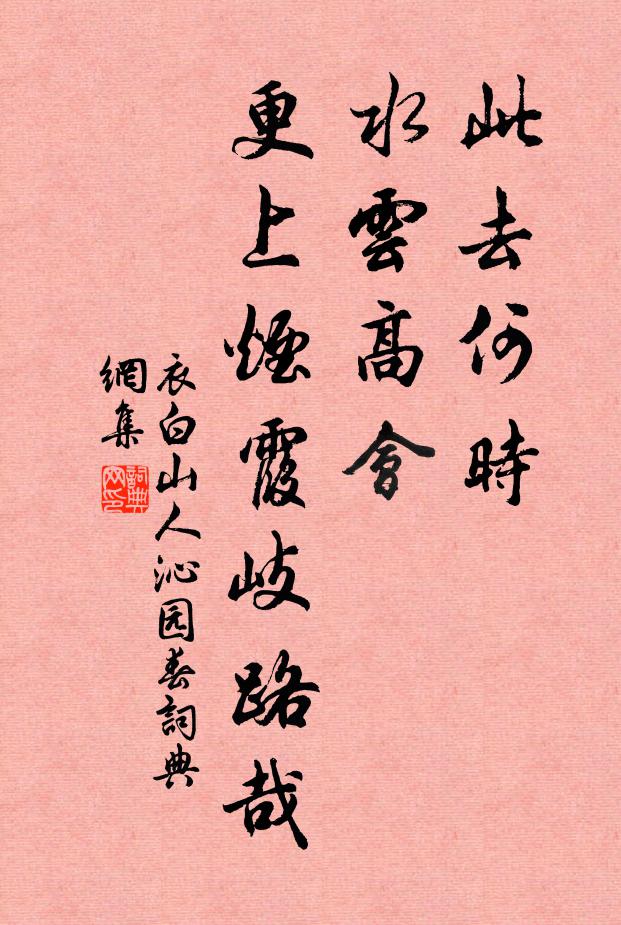 此去何時
水雲高會
更上煙霞岐路哉
衣白山人沁园春詞典
網集
詞典
网印